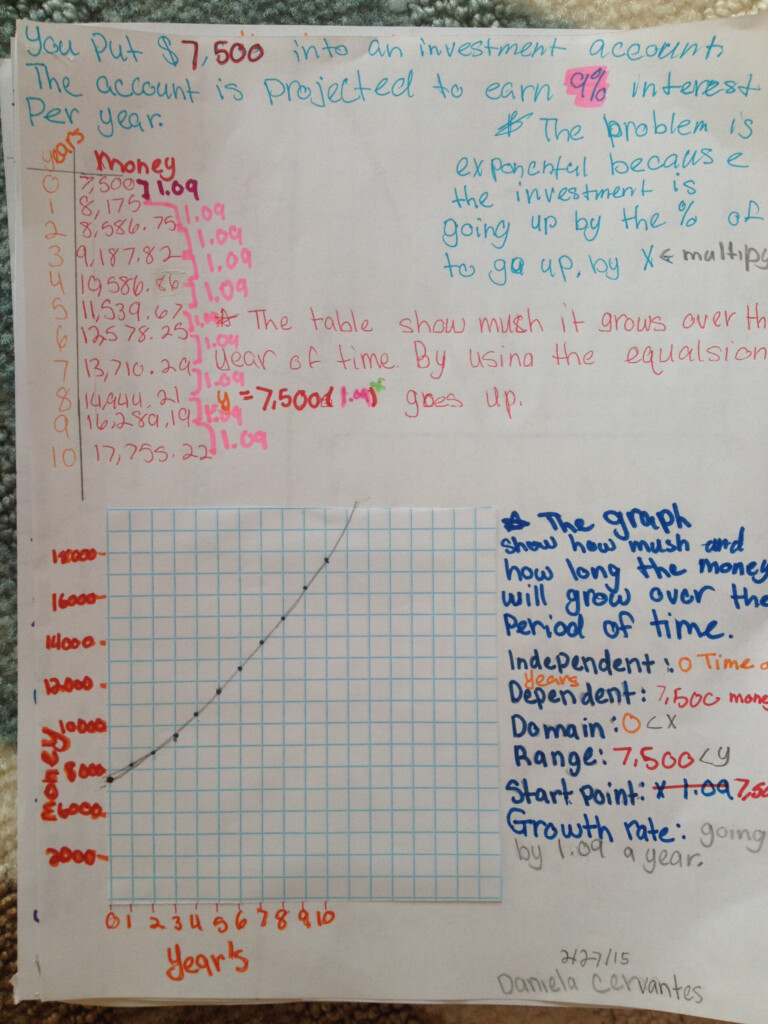 You put $7,500 into an investment account.
The account is projected to earn 9% interest
Per year.
years
money
0 7,500 1.09
1 8,175 1.09
2 8,586.75 1.09
3 9,187.82 1.09
4 10,586.86 1.09
5 11,539.67 1.09
6 12578.25 1.09
7 13,710.29 1.09
8 14,944.21 1.09
9 16,289,19 1.09
10 17,755.22
The problem is
exponental because
the investment is
going up by the % of
to go up, by X ← multipy
The table show mush it grows over th
year of time. By using the equalsion
y = 7,500(1.09)x goes up.
18000
16000
14000
12000
10000
8000
6000
2000
money
0 1 2 3 4 5 6 7 8 9 10
Year's
The graph
show how mush and
how long the money
will grow over the
Period of time.
Independent : 0 Time o
years
Dependent : 7,500 mone
Domain : 0 < x
Range: 7,500 < y
Start point: x 1.09 7,50
Growth rate: going
by 1.09 a year.
2/27/15
Daniela Cervantes